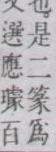 也是二篆為
文選應璩百